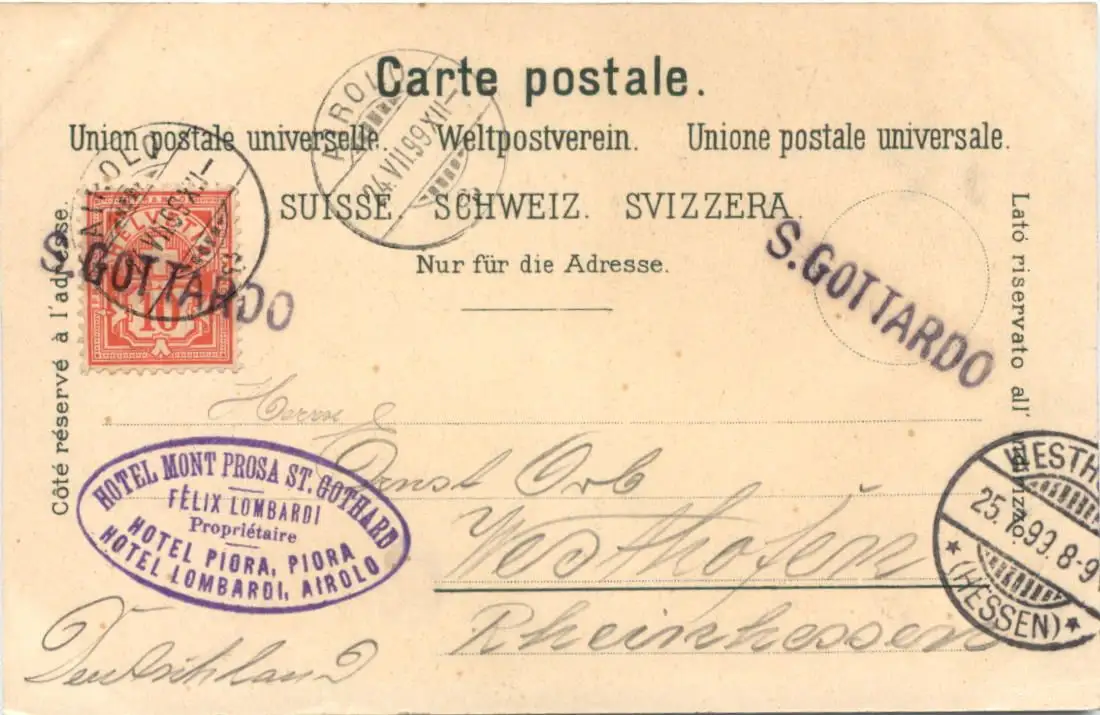 Carte postale.
Union postale universelle. Weltpostverein. Unione postale universale.
SUISSE. SCHWEIZ. SVIZZERA.
Nur für die Adresse.
Côté réservé à l'adresse.
Lato riservato all'
AIROLO
24.VII.99.XII-
AIROLO
HELVETIA
10
S.GOTTARDO
S.GOTTARDO
Herrn
Ernst Orb
Westhofen
Rheinhessen
Deutschland
HOTEL MONT PROSA ST. GOTHARD
FÉLIX LOMBARDI
Propriétaire
HOTEL PIORA, PIORA
HOTEL LOMBARDI, AIROLO
25.7.99.8-9
(HESSEN)